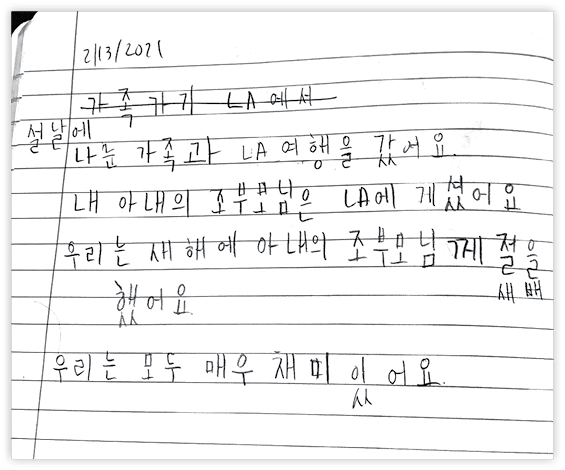 2/13/2021
가족가기 LA에서
설날에
나는 가족과 LA 여행을 갔어요.
내 아내의 조부모님은 LA에 게셨어요
우리는 새해에 아내의 조부모님께 절을
했어요 새배
우리는 모두 매우 채미 있어요.